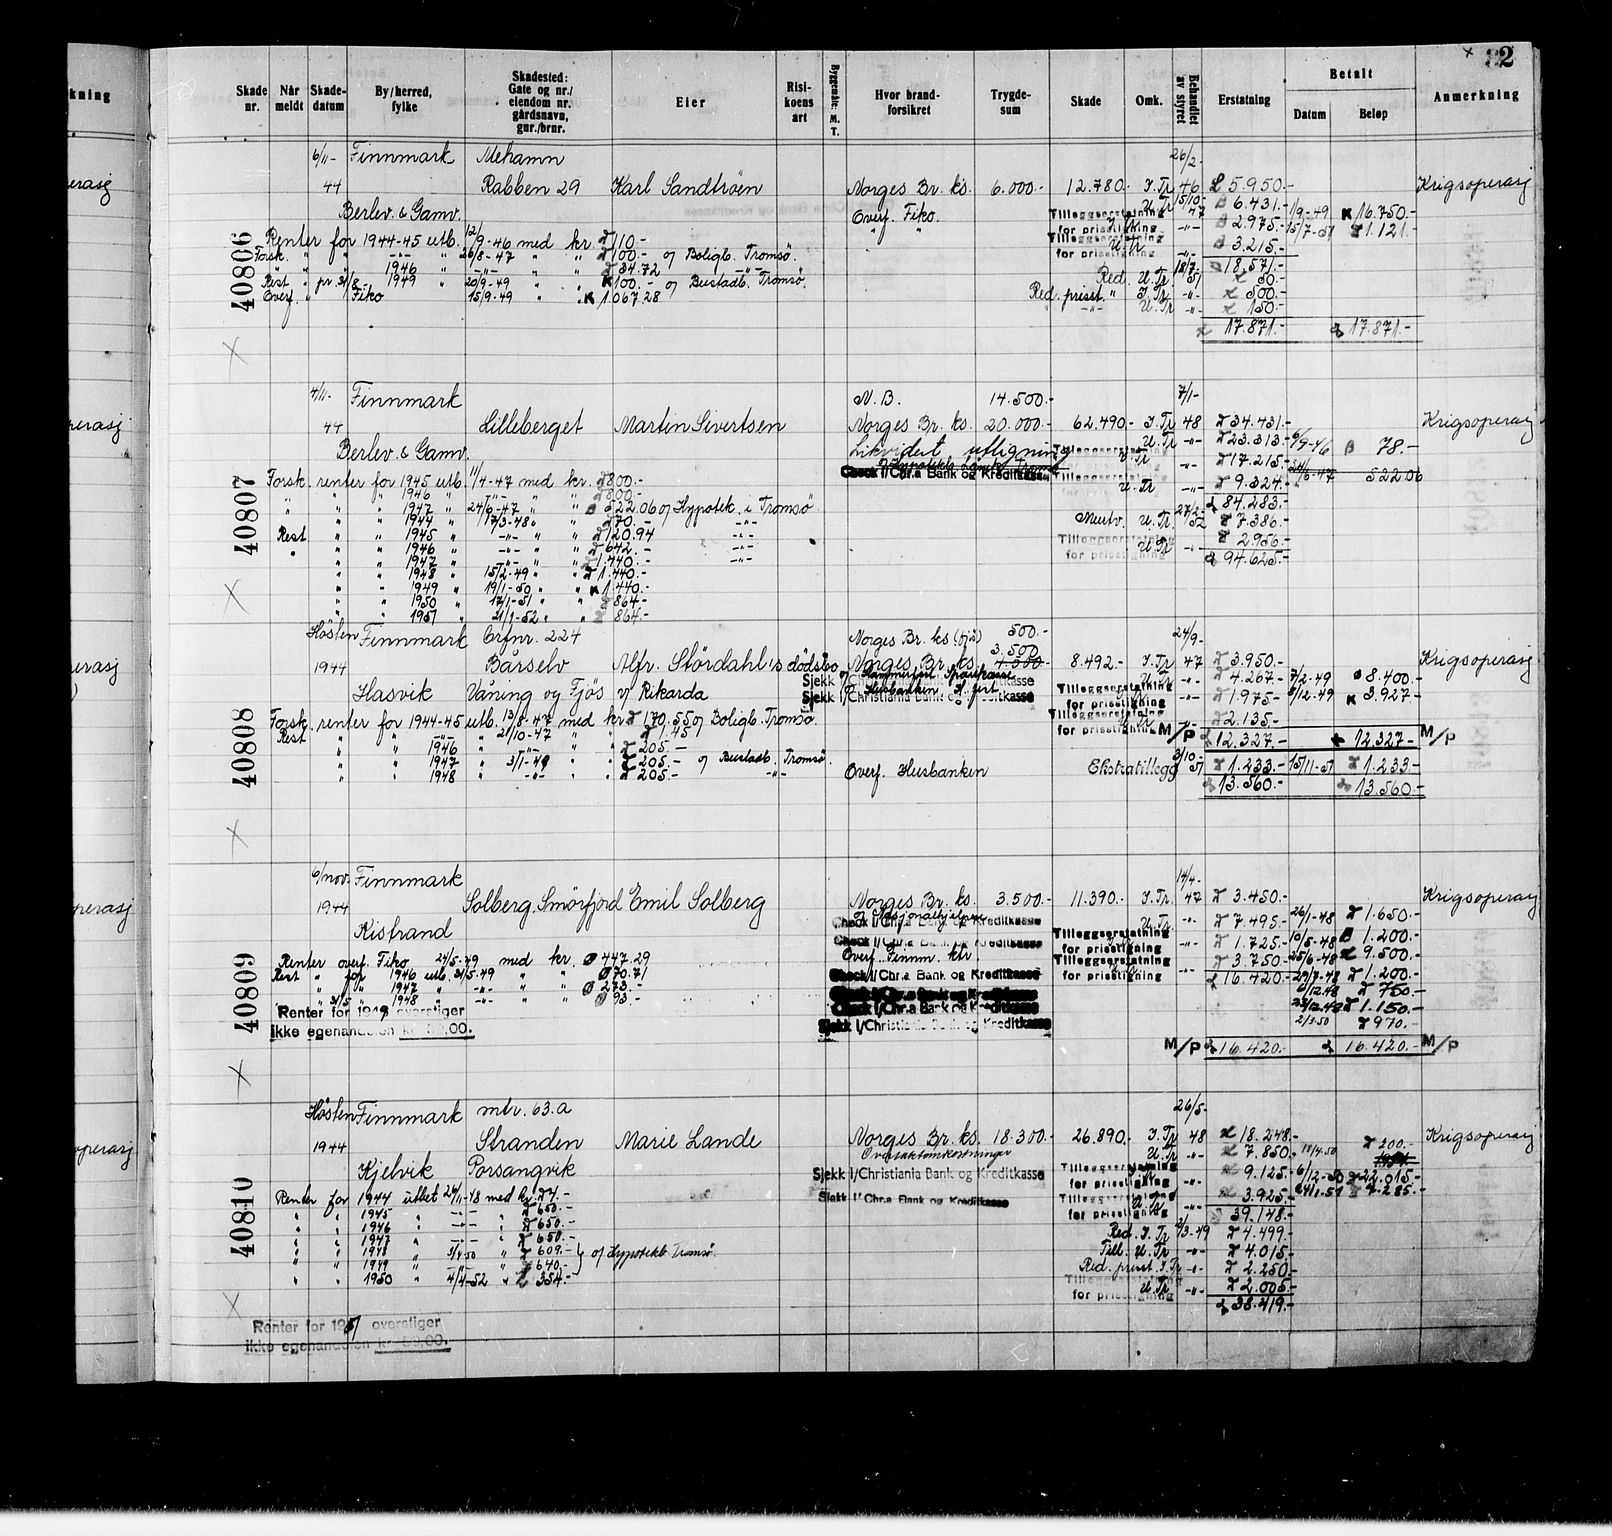 2
kning
Skade nr.
Når meldt
Skade-datum
By/herred, fylke
Skadested: Gate og nr./ eiendom nr. gårdsnavn, gnr./brnr.
Eier
Risi-koens art
Byggemåte: M. T.
Hvor brand-forsikret
Trygde-sum
Skade
Omk.
Behandlet av styret
Erstatning
Betalt
Datum
Beløp
Anmerkning
40806
6/11- Finnmark Mehamn 26/2-
44 Rabben 29 Karl Sandtröen Norges Br. ks. 6.000.- 12.780.- I.Tr. 46 5.950.- Krigsoperasj
Berlev. & Gamv. Overf. Fiko. Tilleggserstatning for prisstigning U.Tr 15/10-47 6.431.- 1/9-49 K 16.750.-
2.975.- 15/7-51 1.121.-
Renter for 1944-45 utb. 12/9-46 med kr. 110.- Tilleggserstatning for prisstigning U.Tr. 3.215.-
Forsk. " " 26/8-47 " " 100.- Boligb. Tromsö. 18.571.-
" " 1946 " 34.72
Rest " pr. 31/8- 1949 " 20/9-49 " K 100.- Bustadb. Tromsö. Red. U.Tr. 50.-
Overf. Fiko 15/9-49 " K 1.067.28 Red. prisst. " I.Tr. 500.-
U.Tr 150.-
17.871.- 17.871.-
40807
4/11- Finnmark N.B. 14.500.- 7/1-
44 Lilleberget Martin Sivertsen Norges Br. ks. 20.000.- 62.490.- I.Tr. 48 34.431.- Krigsoperasj
Berlev. & Gamv. Likvidert utligning U.Tr 23.313.- 6/9-46 78.-
Check l/Chr.a Bank og Kreditkasse Tilleggserstatning for prisstigning I.Tr 17.215.- 522.06
Forsk. renter for 1945 utb. 11/4-47 med kr. 800.- U.Tr 9.324.-
" " " 1946 " 800.- 84.283.-
" " " 1947 " 24/6-47 " 522.06 Hypotek. i Tromsö Merutv. U.Tr. 27/2-52 7.386.-
" " 1944 " 17/3-48 " 70.-
Rest " " 1945 " " 120.94 Tilleggserstatning for prisstigning U.Tr 2.956.-
" " " 1946 " " 642.- 94.625.-
" " 1947 " " 1.440.-
" " 1948 " 15/2-49 " 1.440.-
" " 1949 " 19/1-50 " K 1.440.-
" " 1950 " 12/1-51 " 864.-
" " 1951 " 21/1-52 " 864.-
40808
Hösten Finnmark Brfnr. 224 Norges Br. ks 500.- 24/9-
3.500
1944 Bårselv Alfr. Stördahl's dödsbo Norges Br. ks. 8.492.- I.Tr. 47 3.950.- Krigsoperasj
Hasvik Våning og Fjös v/ Rikarda Hammerfest Sparekasse 4.267.- 7/2-49 8.400.-
Sjekk l/Christiania Bank og Kreditkasse Tilleggserstatning for prisstigning 1.975.- 3/12-49 K 3.927.-
Forsk. renter for 1944-45 utb. 13/8-47 med kr 170.55 Boligb. Tromsö. Tilleggserstatning for prisstigning 2.135.-
Rest " " 21/10-47 " 1.45 M/P 12.327.- 12.327.- M/P
" " 1946 " " 205.-
" " 1947 " 3/1-49 " 205.- Bustadb. Tromsö. Ekstratillegg 3/10-51 1.233.- 15/11-51 1.233.-
" " 1948 " " 205.- Overf. Husbanken 13.560.- 13.560.-
40809
6/nov. Finnmark 14/4-
1944 Solberg, Smörfjord Emil Solberg Norges Br. ks. 3.500.- 11.390.- I.Tr. 47 3.450.- Krigsoperasj
Kistrand Check l/Chr.a Bank og Kreditkasse U.Tr. 7.495.- 26/1-48 1.650.-
Check l/Chr.a Bank og Kreditkasse Tilleggserstatning for prisstigning 1.725.- 10/5-48 1.200.-
Renter overf. Fiko 24/5-49 med kr. 447.29 Overf. Finnm. ktr. Tilleggserstatning for prisstigning 3.750.- 25/6-48 9.500.-
Rest " for 1946 utb. 31/5-49 " 70.71 Check l/Chr.a Bank og Kreditkasse 16.420.- 29/7-48 1.200.-
" " 1947 " " 273.- 750.-
" " 31/5 1948 " " 93.- Check l/Chr.a Bank og Kreditkasse 1.150.-
Renter for 1949 overstiger Sjekk l/Christiania Bank og Kreditkasse 2/3-50 970.-
ikke egenandelen
M/P 16.420.- 16.420.- M/P
40810
Hösten Finnmark mtr. 63.a 26/5-
1944 Stranden Marie Lande Norges Br. ks. 18.300.- 26.890.- I.Tr 48 18.248.- Krigsoperasj
Kjelvik Porsangvik Overtaktomkostninger U.Tr 7.850.- 200.-
Sjekk l/Christiania Bank og Kreditkasse Tilleggserstatning for prisstigning 9.125.- 6/12-50 22.015.-
Renter for 1944 utbet 24/11-48 med kr. 27.- Sjekk l/Chr.a Bank og Kreditkasse Tilleggserstatning for prisstigning 3.925.- 7.285.-
" " 1945 " " 650.- 39.148.-
" " 1946 " " 650.- Red. I.Tr 2/3-49 4.499.-
" " 1947 " " 650.- Till. U.Tr 4.015.-
" " 1948 " 3/4-50 " 609.- Hypotekb. Tromsö. Red. prisst. I.Tr. 2.250.-
" " 1949 " " 640.- Tilleggserstatning for prisstigning U.Tr 2.005.-
" " 1950 " 4/4-52 " 354.- 38.419.-
Renter for 1951 overstiger
ikke egenandelen